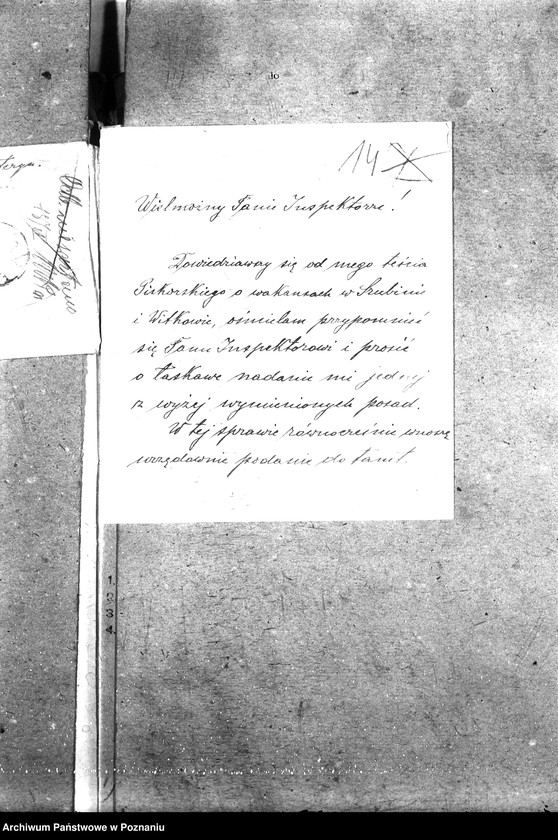 10
14 X
Wielmożny Panie Inspektorze!
Dowiedziawszy się od mego teścia
Piskorskiego o wakansach w Szubinie
i Witkowie, ośmielam przypomnieć
się Panu Inspektorowi i prosić
o łaskawe nadanie mi jednej
z wyżej wymienionych posad.
W tej sprawie równocześnie wnoszę
urzędownie podanie do tamt.
1.
2
3
4.
Archiwum Państwowe w Poznaniu